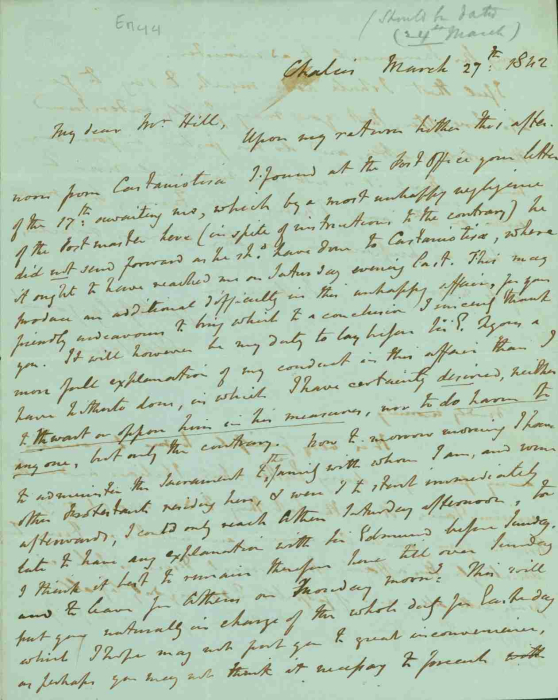 EM44
(Should be dated
(24th March)
Chalcis March 27th. 1842
My dear Mr. Hill,
Upon my return hither this after-
noon from Castaniotisa I found at the Post Office your letter
of the 17th. awaiting me, which by a most unhappy negligence
of the Postmaster here (in spite of instructions to the contrary) he
did not send forward as he shd. have done to Castaniotisa, where
it ought to have reached me on Saturday evening last. This may
produce an additional difficulty in this unhappy affair, for your
friendly endeavours to bring which to a conclusion I sincerely thank
you. It will however be my duty to lay before Sir E. Lyons a
more full explanation of my conduct in this affair than I
have hitherto done, in which I have certainly desired, neither
to thwart or oppose him in his measures, nor to do harm to
any one, but only the contrary. Now to morrow morning I have
to administer the Sacrament to the family with whom I am, and some
other Protestants residing here, & were I to start immediately
afterwards, I could only reach Athens Saturday afternoon, too
late to have any explanation with Sir Edmund before Sunday.
I think it best to remain therefore here till over Sunday
and to leave for Athens on Monday morng. This will
put you naturally in charge of the whole duty for Easter day
which I hope may not put you to great inconvenience,
as perhaps you may not think it necessary to proceed with